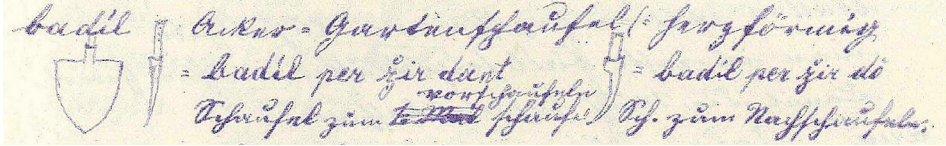 badil Acker = Gartenschaufel (= herzförmig
= badil per žir dant = badil per žir dō
vorschaufeln
Schaufel zum schaufeln) Sch. zum Nachschaufeln.